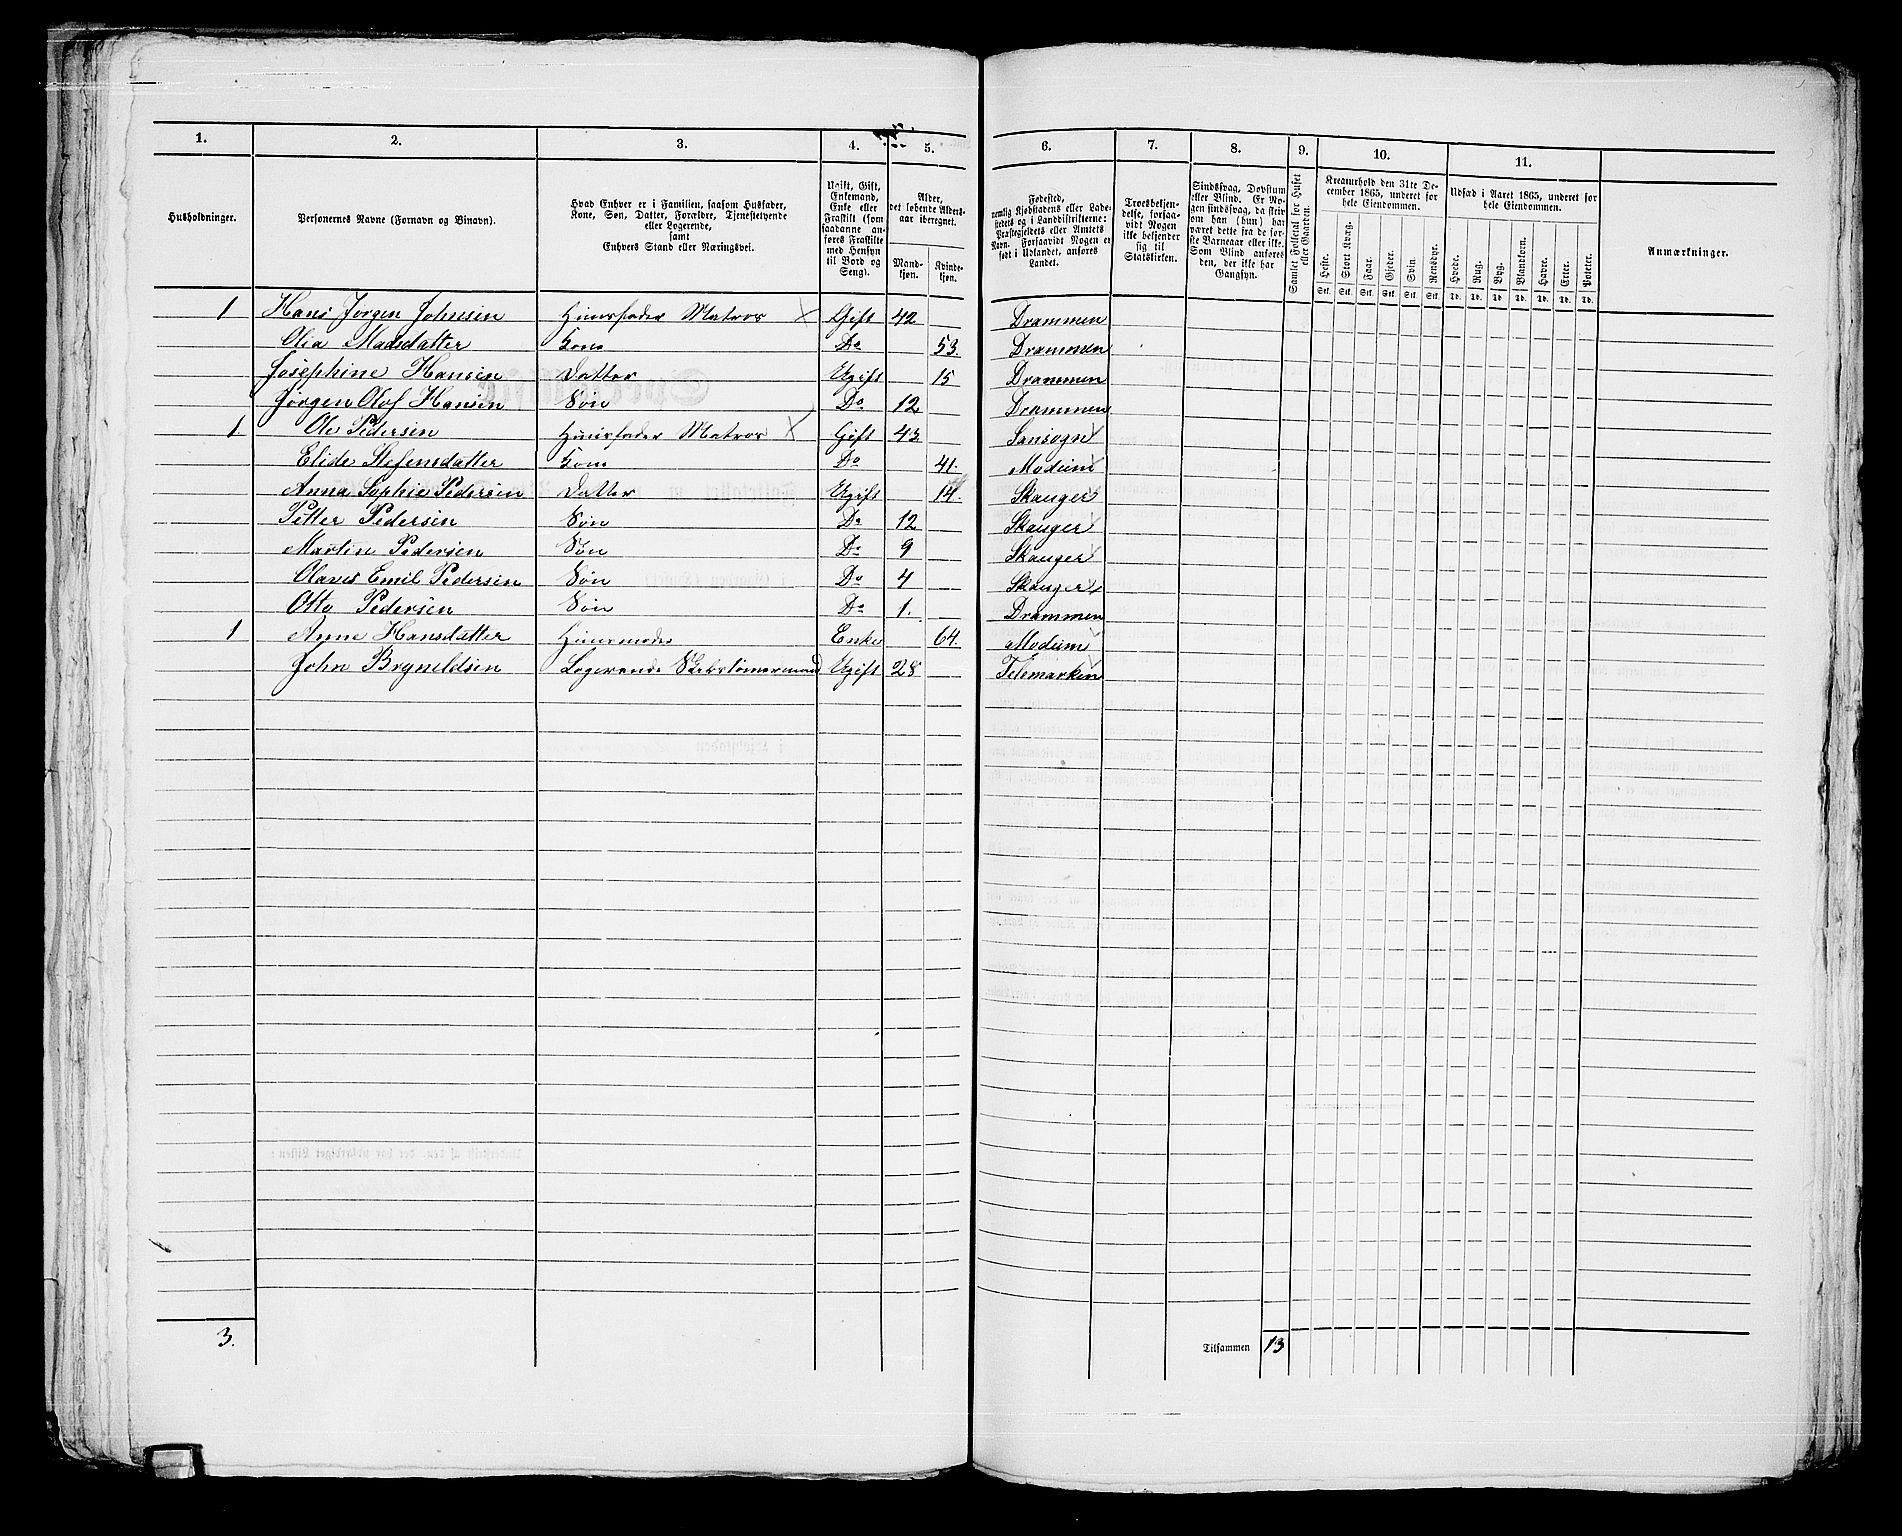 1. 2. 3. 4. 5. 6. 7. 8. 9. 10. 11.
Husholdninger.
Personernes Navne (Fornavn og Binavn).
Hvad Enhver er i Familien, saasom Husfader,
Kone, Søn, Datter, Forældre, Tjenestetyende
eller Logerende,
samt
Enhvers Stand eller Næringsvei.
Ugift, Gift,
Enkemand,
Enke eller
Fraskilt (som
saadanne an-
føres Fraskilte
med Hensyn
til Bord og
Seng).
Alder,
det løbende Alders-
aar iberegnet.
Mand-
kjøn.
Kvinde-
kjøn.
Fødested,
nemlig Kjøbstadens eller Lade-
stedets og i Landdistrikterne:
Præstegjeldets eller Amtets
Navn. Forsaavidt Nogen er
født i Udlandet, anføres
Landet.
Troesbekjen-
delse, forsaa-
vidt Nogen
ikke bekjender
sig til
Statskirken.
Sindssvag, Døvstum
eller Blind. Er No-
gen sindssvag, da skriv
om han (hun) har
været dette fra de før-
ste Barneaar eller ikke.
Som Blind anføres
den, der ikke har
Gangsyn.
Samlet Folketal for Huset
eller Gaarden.
Kreaturhold den 31te De-
cember 1865, underet for
hele Eiendommen.
Heste. Stort Kvæg. Faar. Gjeder. Svin. Rensdyr.
Stk. Stk. Stk. Stk. Stk. Stk.
Udsæd i Aaret 1865, underet for
hele Eiendommen.
Hvede. Rug. Byg. Blandkorn. Havre. Erter. Poteter.
Td. Td. Td. Td. Td. Td. Td.
Anmærkninger.
1 Hans Jørgen Johnsen Huusfader Matros X Gift 42 Drammen
Olia Madsdatter Kone Do 53. Drammen
Josephine Hansen Datter Ugift 15 Drammen
Jørgen Olof Hansen Søn Do 12 Drammen
1. Ole Pedersen Huusfader Matros X Gift 43
Elide Stefensdatter Kone Do 41. Modum
Anna Sophie Pedersen Datter Ugift 14. Skauger
Petter Pedersen Søn Do 12 Skauger
Martin Pedersen Søn Do 9 Skauger
Olaves Emil Pedersen Søn Do 4 Skauger
Otto Pedersen Søn Do 1. Drammen
1 Anne Hansdatter Huusmoder Enke 64. Modum
John Bryneldsen Logerende Ugift 28 Telemarken
3.
Tilsammen 13